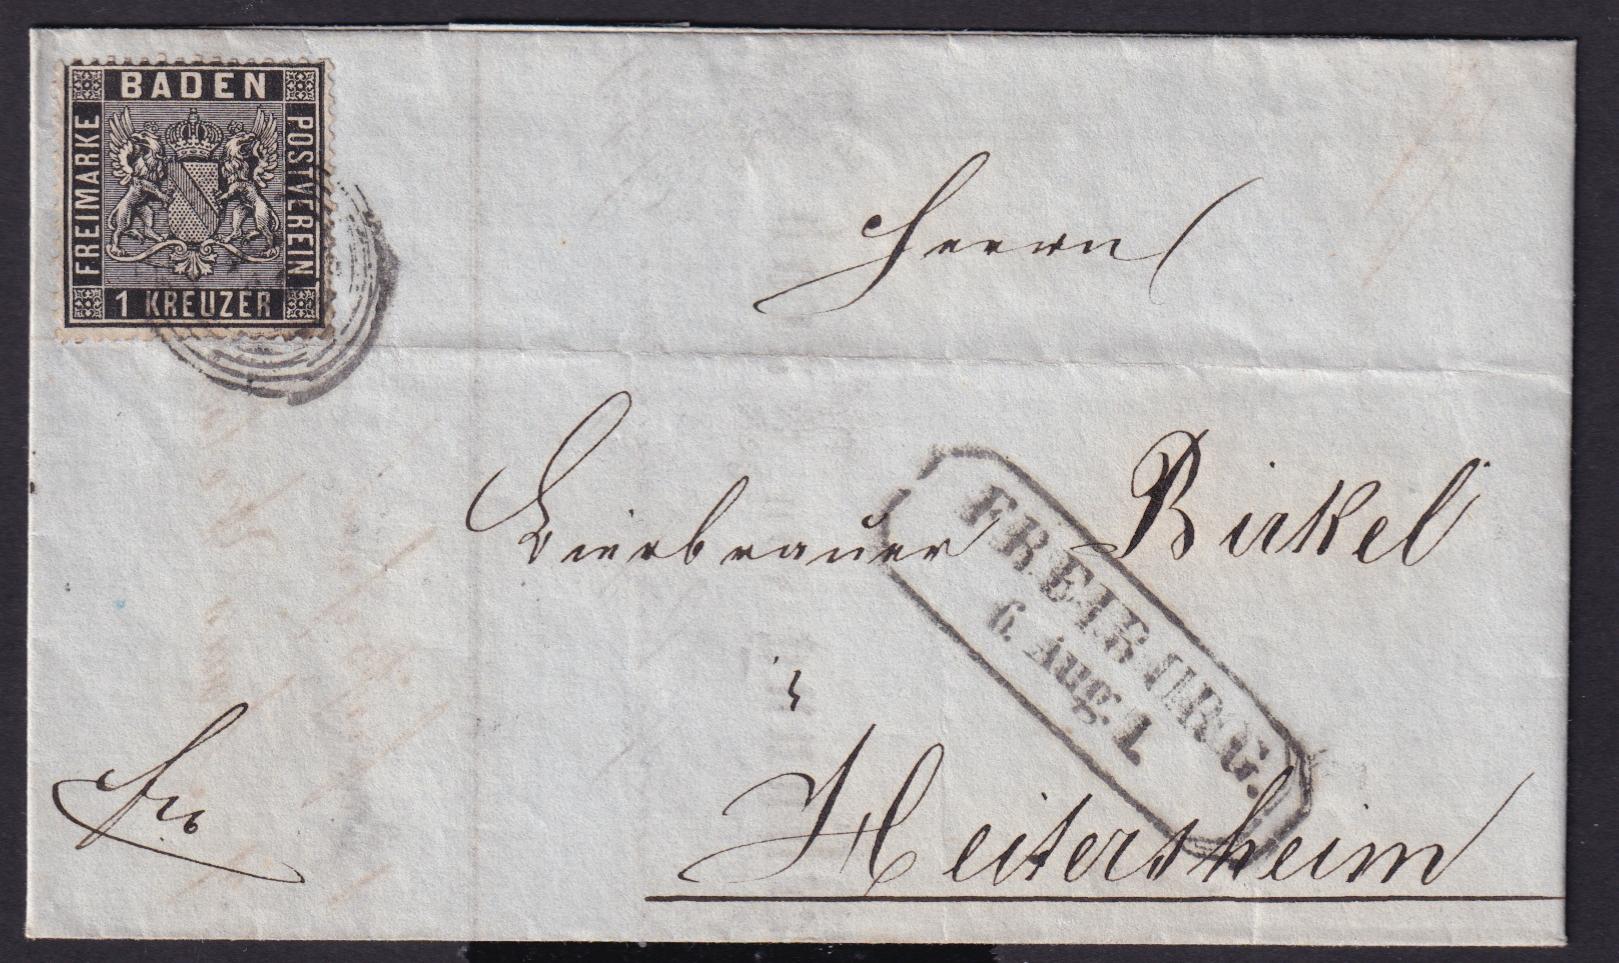 BADEN
FREIMARKE
POSTVEREIN
1 KREUZER
Herrn
Bierbrauer Birkel
FREIBURG.
6. Aug. 1.
Heitersheim